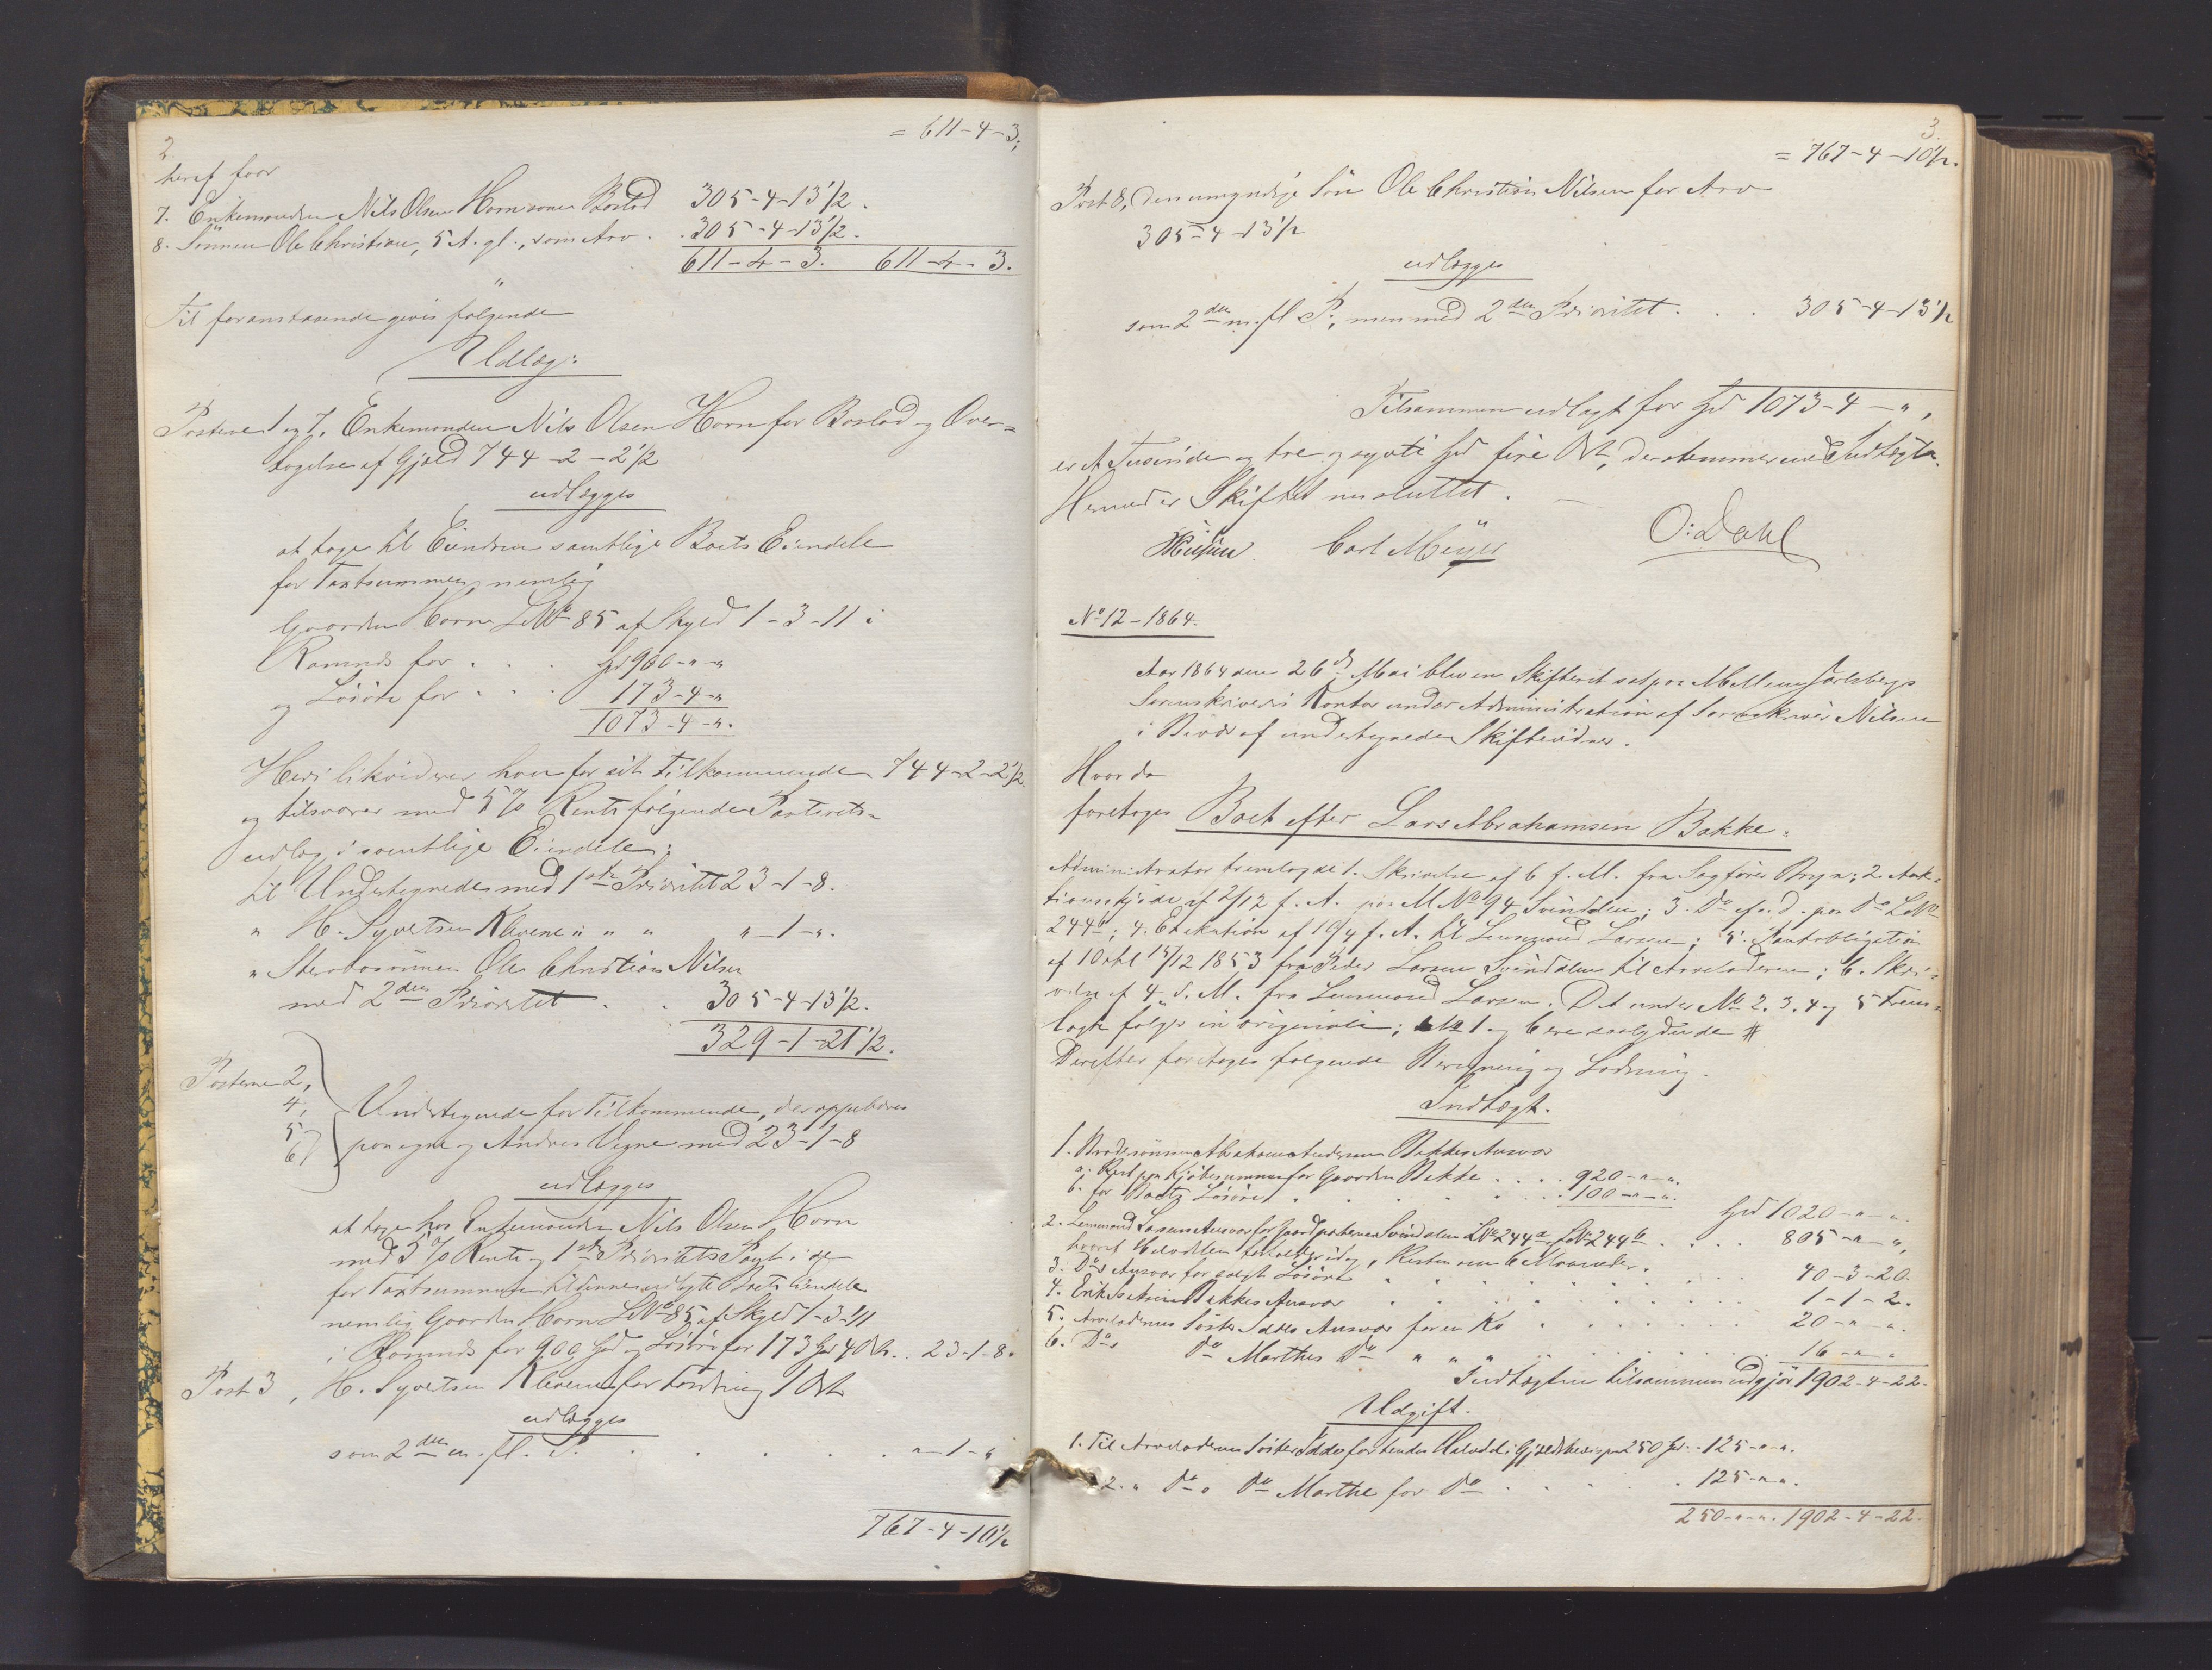 2
= 611-4-3;
heraf faar
7. Enkemanden Nils Olsen Horn som Boslod 305-4-13 1/2.
8. Sönnen Ole Christian, 5 A. gl., som Arv . . 305-4-13 1/2.
611-4-3. 611-4-3.
"
Til foranstaaende gives fölgende
Udlæg:
Posterne 1 og 7. Enkemanden Nils Olsen Horn for Boslod og Over=
tagelse af Gjæld 744-2-2 1/2
udlægges
at tage til Eiendom samtlige Boets Eiendele
for Taxtsummen, nemlig
Gaarden Horn LNo 85 af Skyld 1-3-11 i
Ramnes for . . . Spd 900-"-"
og Lösöre for . . . 173-4-"
1073-4-".
Heri likviderer han for sit Tilkommende 744-2-2 1/2
og tilsvarer med 5% Rente fölgende Panterets=
udlæg i samtlige Eiendele:
til Undertegnede med 1ste Prioritet 23-1-8.
" H. Syvertsen Klevene " " " "-1-".
" Sterbosönnen Ole Christian Nilsen
med 2den Prioritet . . 305-4-13 1/2.
329-1-21 1/2.
Posterne 2,
4,
5
6
Undertegnede for Tilkommende, der oppebæres
paa egne og Andres Vegne med 23-1-8
udlægges
at tage hos Enkemanden Nils Olsen Horn
med 5% Rente og 1ste Prioritets Pant i de
for Taxtsummen til denne udlagte Boets Eiendele
nemlig Gaarden Horn LNo 85 af Skyld 1-3-11
i Ramnes for 900 Spd og Lösöre for 173 Spd 4 Ort . . 23-1-8.
Post 3, H. Syvertsen Klevene for Fordring 1 Ort
udlægges
som 2den m. fl. P. . . . . . . "-1-"
767-4-10 1/2
3.
= 767-4-10 1/2.
Post 8, den umyndige Sön Ole Christian Nilsen for Arv
305-4-13 1/2
udlægges
som 2den m. fl P., men med 2den Prioritet . . . 305-4-13 1/2
Tilsammen udlagt for Spd 1073-4-",
er et Tusinde og tre og sytti Spd fire Ort, der stemmer med Indtægten.
Hermed er Skiftet nu sluttet.
Carl Meyer O: Dahl
No 12-1864.
Aar 1864 den 26de Mai blev en Skifteret sat paa Mellem Jarlsbergs
Sorenskriveris Kontor under Administration af Sorenskriver Nilsen
i Biværelse af undertegnede Skiftevidner.
Hvor da
foretoges Boet efter Lars Abrahamsen Bakke.
Administrator fremlagde 1. Skrivelse af 6 f. M. fra Sagförer Bryn; 2. Auk=
tionsskjöde af 2/12 f. A. paa MNo 94 Svindalen; 3. Do af s. d. paa Do LNo
244b; 4. Exekution af 19/4 f. A. til Lennword Larsen; 5. Pantobligation
af 10 1853 fra Peder Larsen Svindalen til Arveladeren; 6. Skri=
velse af 4 d. M. fra Larsen. Det under No 2. 3. 4 og 5 Frem=
lagte fölger in originali; No 1 og 6 ere saalydende #
Derefter foretoges fölgende Beregning og Lodning.
Indtægt.
1. Brodersönnen Abraham Andersen Bakkes Ansvar
a. Rest paa Kjöbesummen for Gaarden Bakke . . . . 920-"-".
b. for Boets Lösöre . . . . . . 100-"-".
Spd 1020-"-"
2. Larsens Ansvar for Jordparterne Svindalen LNo 244a og LNo 244b . . . . 805-"-",
hvoraf Halvdelen betaltes idag, Resten om 6 Maaneder.
3. Dos Ansvar for solgt Lösöre . . . . . 40-3-20.
4. Bakkes Ansvar . . . . . 1-1-2.
5. Arveladerens Söster Ansvar for en Ko . . . . . 20-"-".
6. Dos Do Marthes Do " " " . . . . . 16-"-"
Indtægten tilsammen udgjör 1902-4-22.
Udgift.
1. Til Arveladerens Söster for hendes Halvdel i Gjældsbevis paa 250 Spd . . 125-"-".
2. " Do " Do Marthe for Do . . . . . . 125-"-".
250-"-". 1902-4-22.